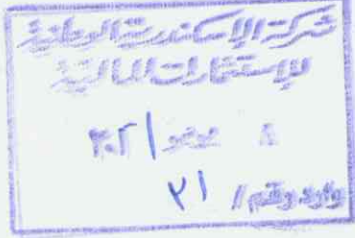 شركة الإسكندرية الوطنية
للإستثمارات المالية
٨
وارد رقم / ٢١